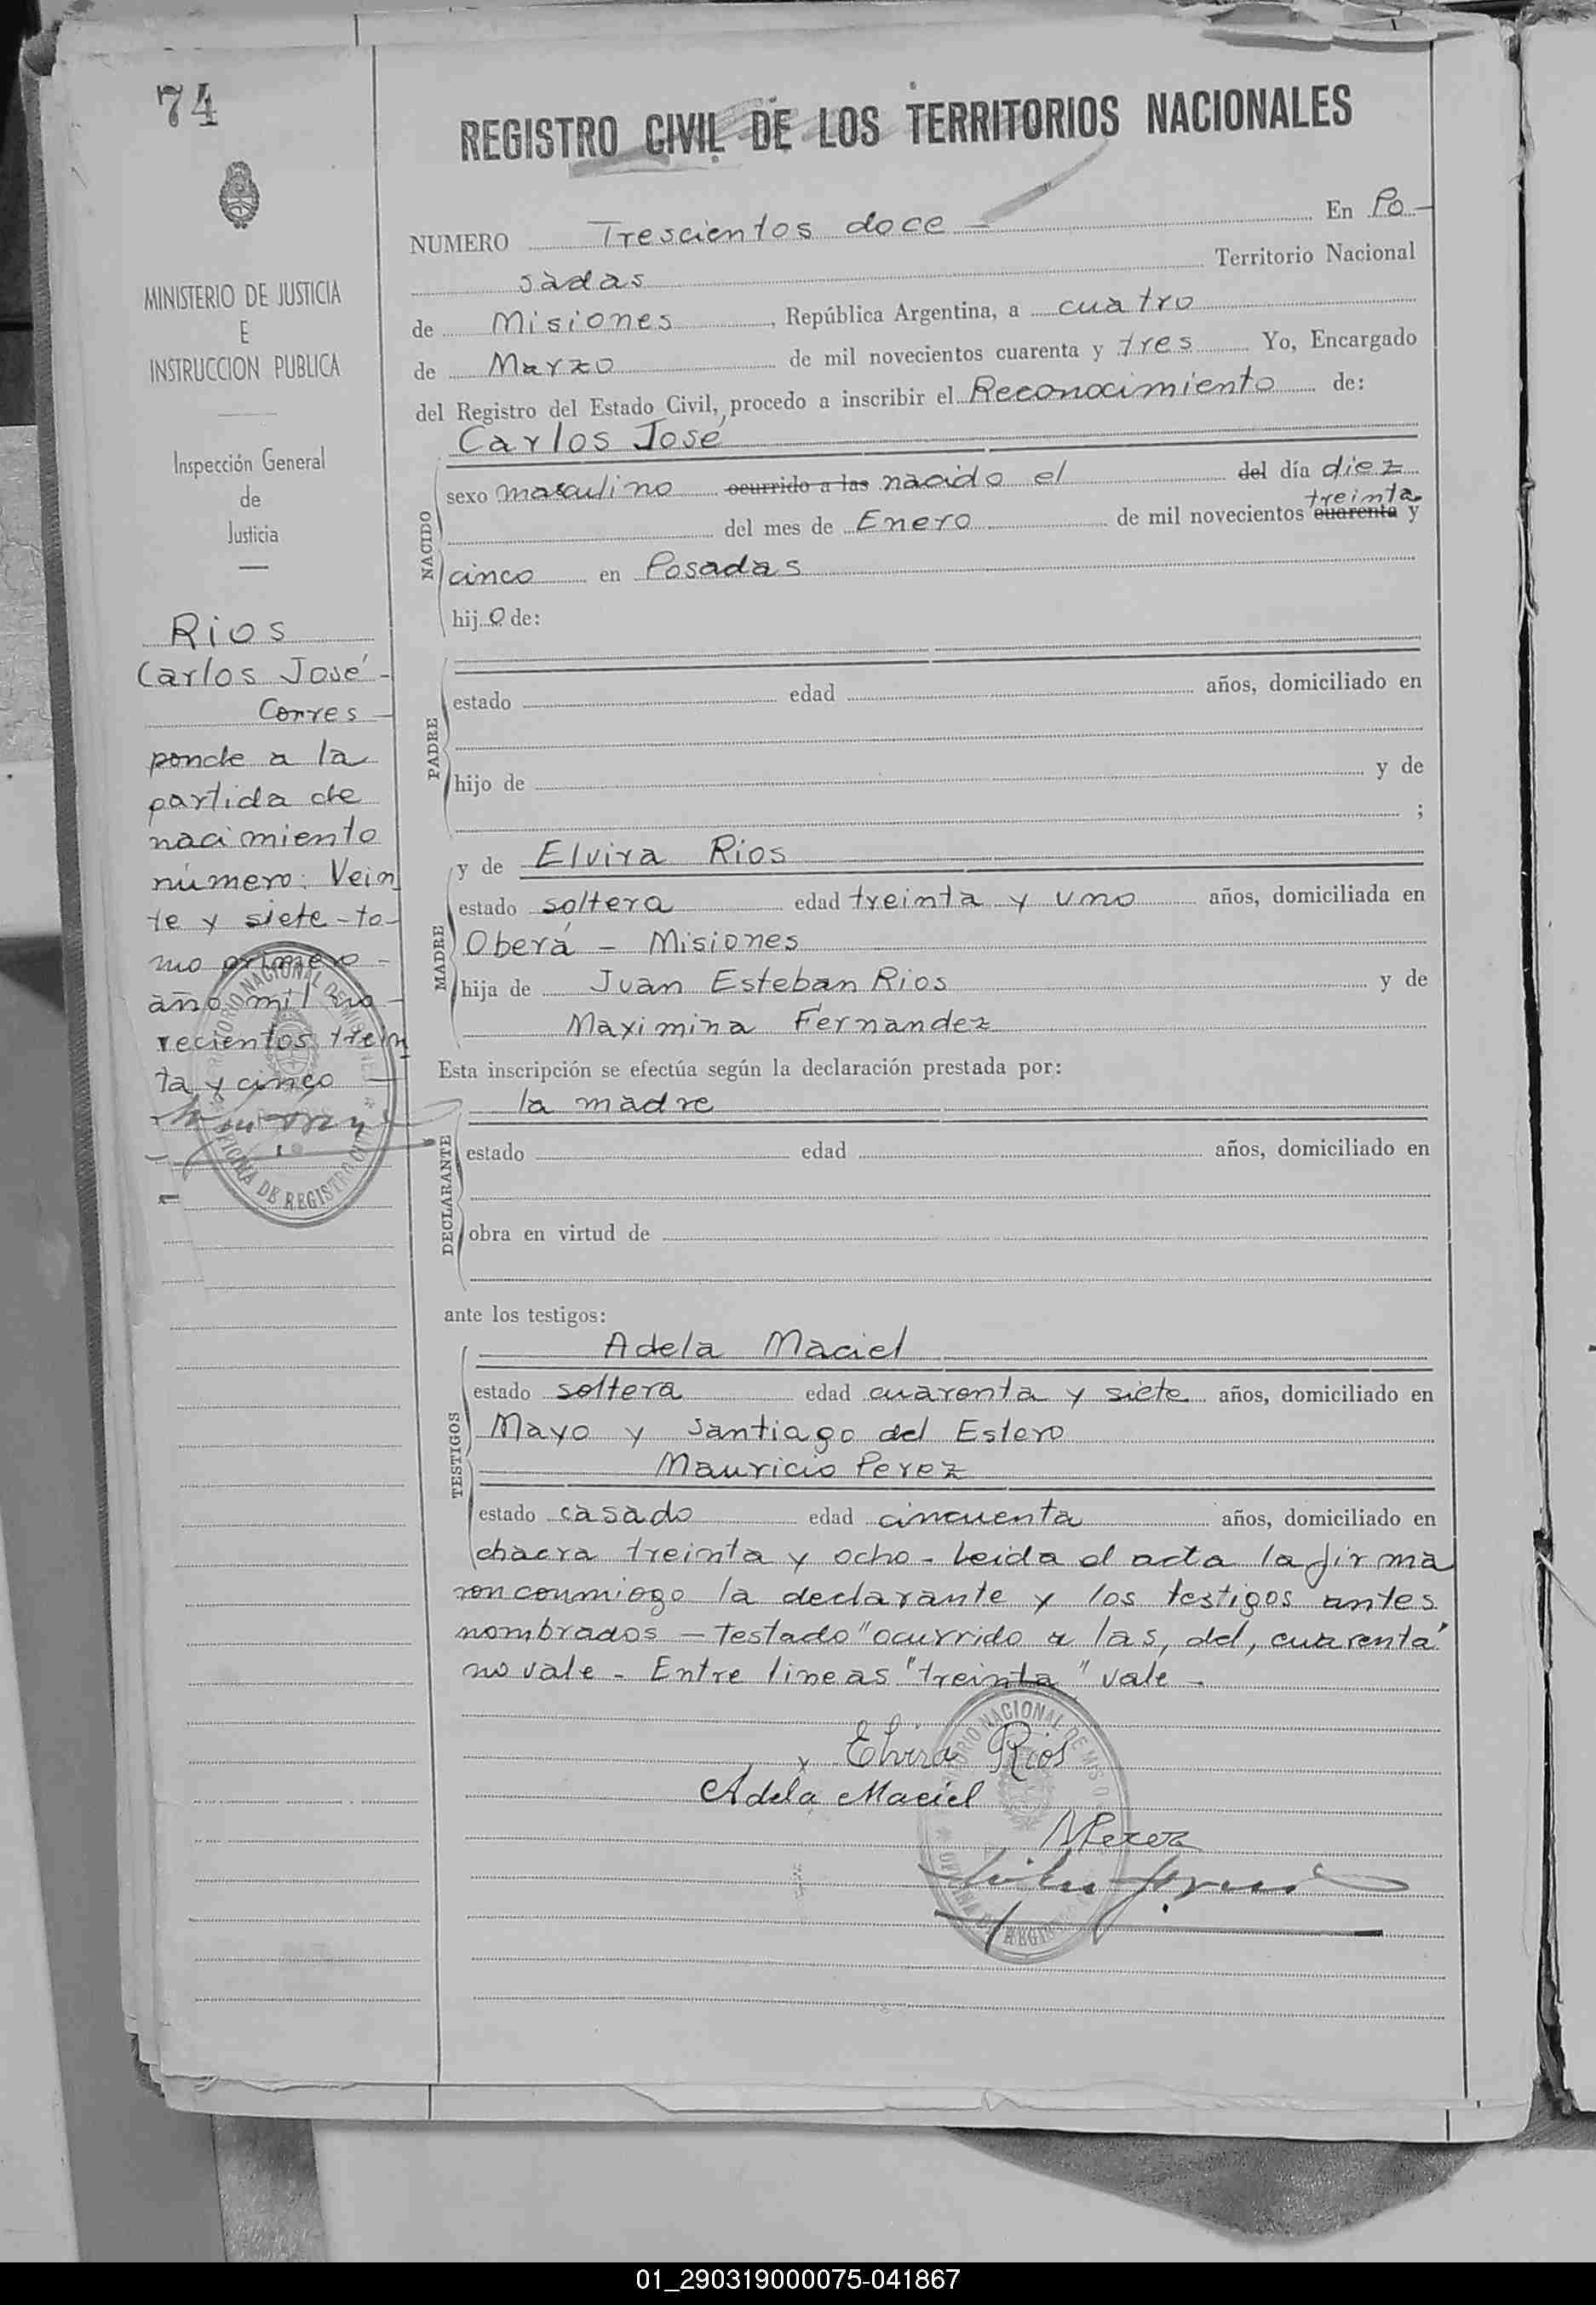 74
REGISTRO CIVIL DE LOS TERRITORIOS NACIONALES
MINISTERIO DE JUSTICIA
E
INSTRUCCION PUBLICA
Inspección General
de
Justicia
Rios
Carlos José -
Corres -
ponde a la
partida de
nacimiento
número: Vein
te y siete - to-
mo primero -
año mil no -
vecientos trein
ta y cinco —
NUMERO Trescientos doce — En Po-
sadas Territorio Nacional
de Misiones, República Argentina, a cuatro
de Marzo de mil novecientos cuarenta y tres Yo, Encargado
del Registro del Estado Civil, procedo a inscribir el Reconocimiento de:
Carlos José
NACIDO
sexo masculino ocurrido a las nacido el del día diez
treinta
del mes de Enero de mil novecientos cuarenta y
cinco en Posadas
hijo de:
PADRE
estado edad años, domiciliado en
hijo de y de
;
MADRE
y de Elvira Rios
estado soltera edad treinta y uno años, domiciliada en
Oberá - Misiones
hija de Juan Esteban Rios y de
Maximina Fernandez
Esta inscripción se efectúa según la declaración prestada por:
DECLARANTE
la madre
estado edad años, domiciliado en
obra en virtud de
ante los testigos:
TESTIGOS
Adela Maciel
estado soltera edad cuarenta y siete años, domiciliado en
Mayo y Santiago del Estero
Mauricio Perez
estado casado edad cincuenta años, domiciliado en
chacra treinta y ocho - Leida el acta la firma
la declarante y los testigos antes
nombrados — Testado "ocurrido a las, del, cuarenta"
no vale - Entre lineas "treinta" vale -
x Elvira Rios
Adela Maciel
MPerez
OFICINA DE REGISTRO
01_290319000075-041867